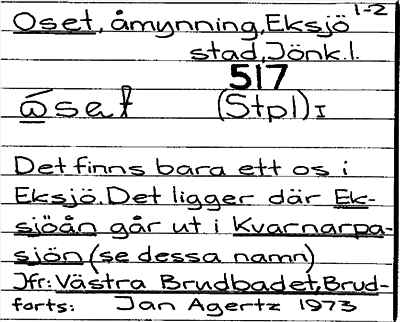 1-2
Oset, åmynning, Eksjö
stad, Jönk.l.
517
ω̄set (Stpl) I
Det finns bara ett os i
Eksjö. Det ligger där Ek-
sjöån går ut i Kvarnarpa-
sjön (se dessa namn)
Jfr: Västra Brudbadet, Brud-
forts: Jan Agertz 1973